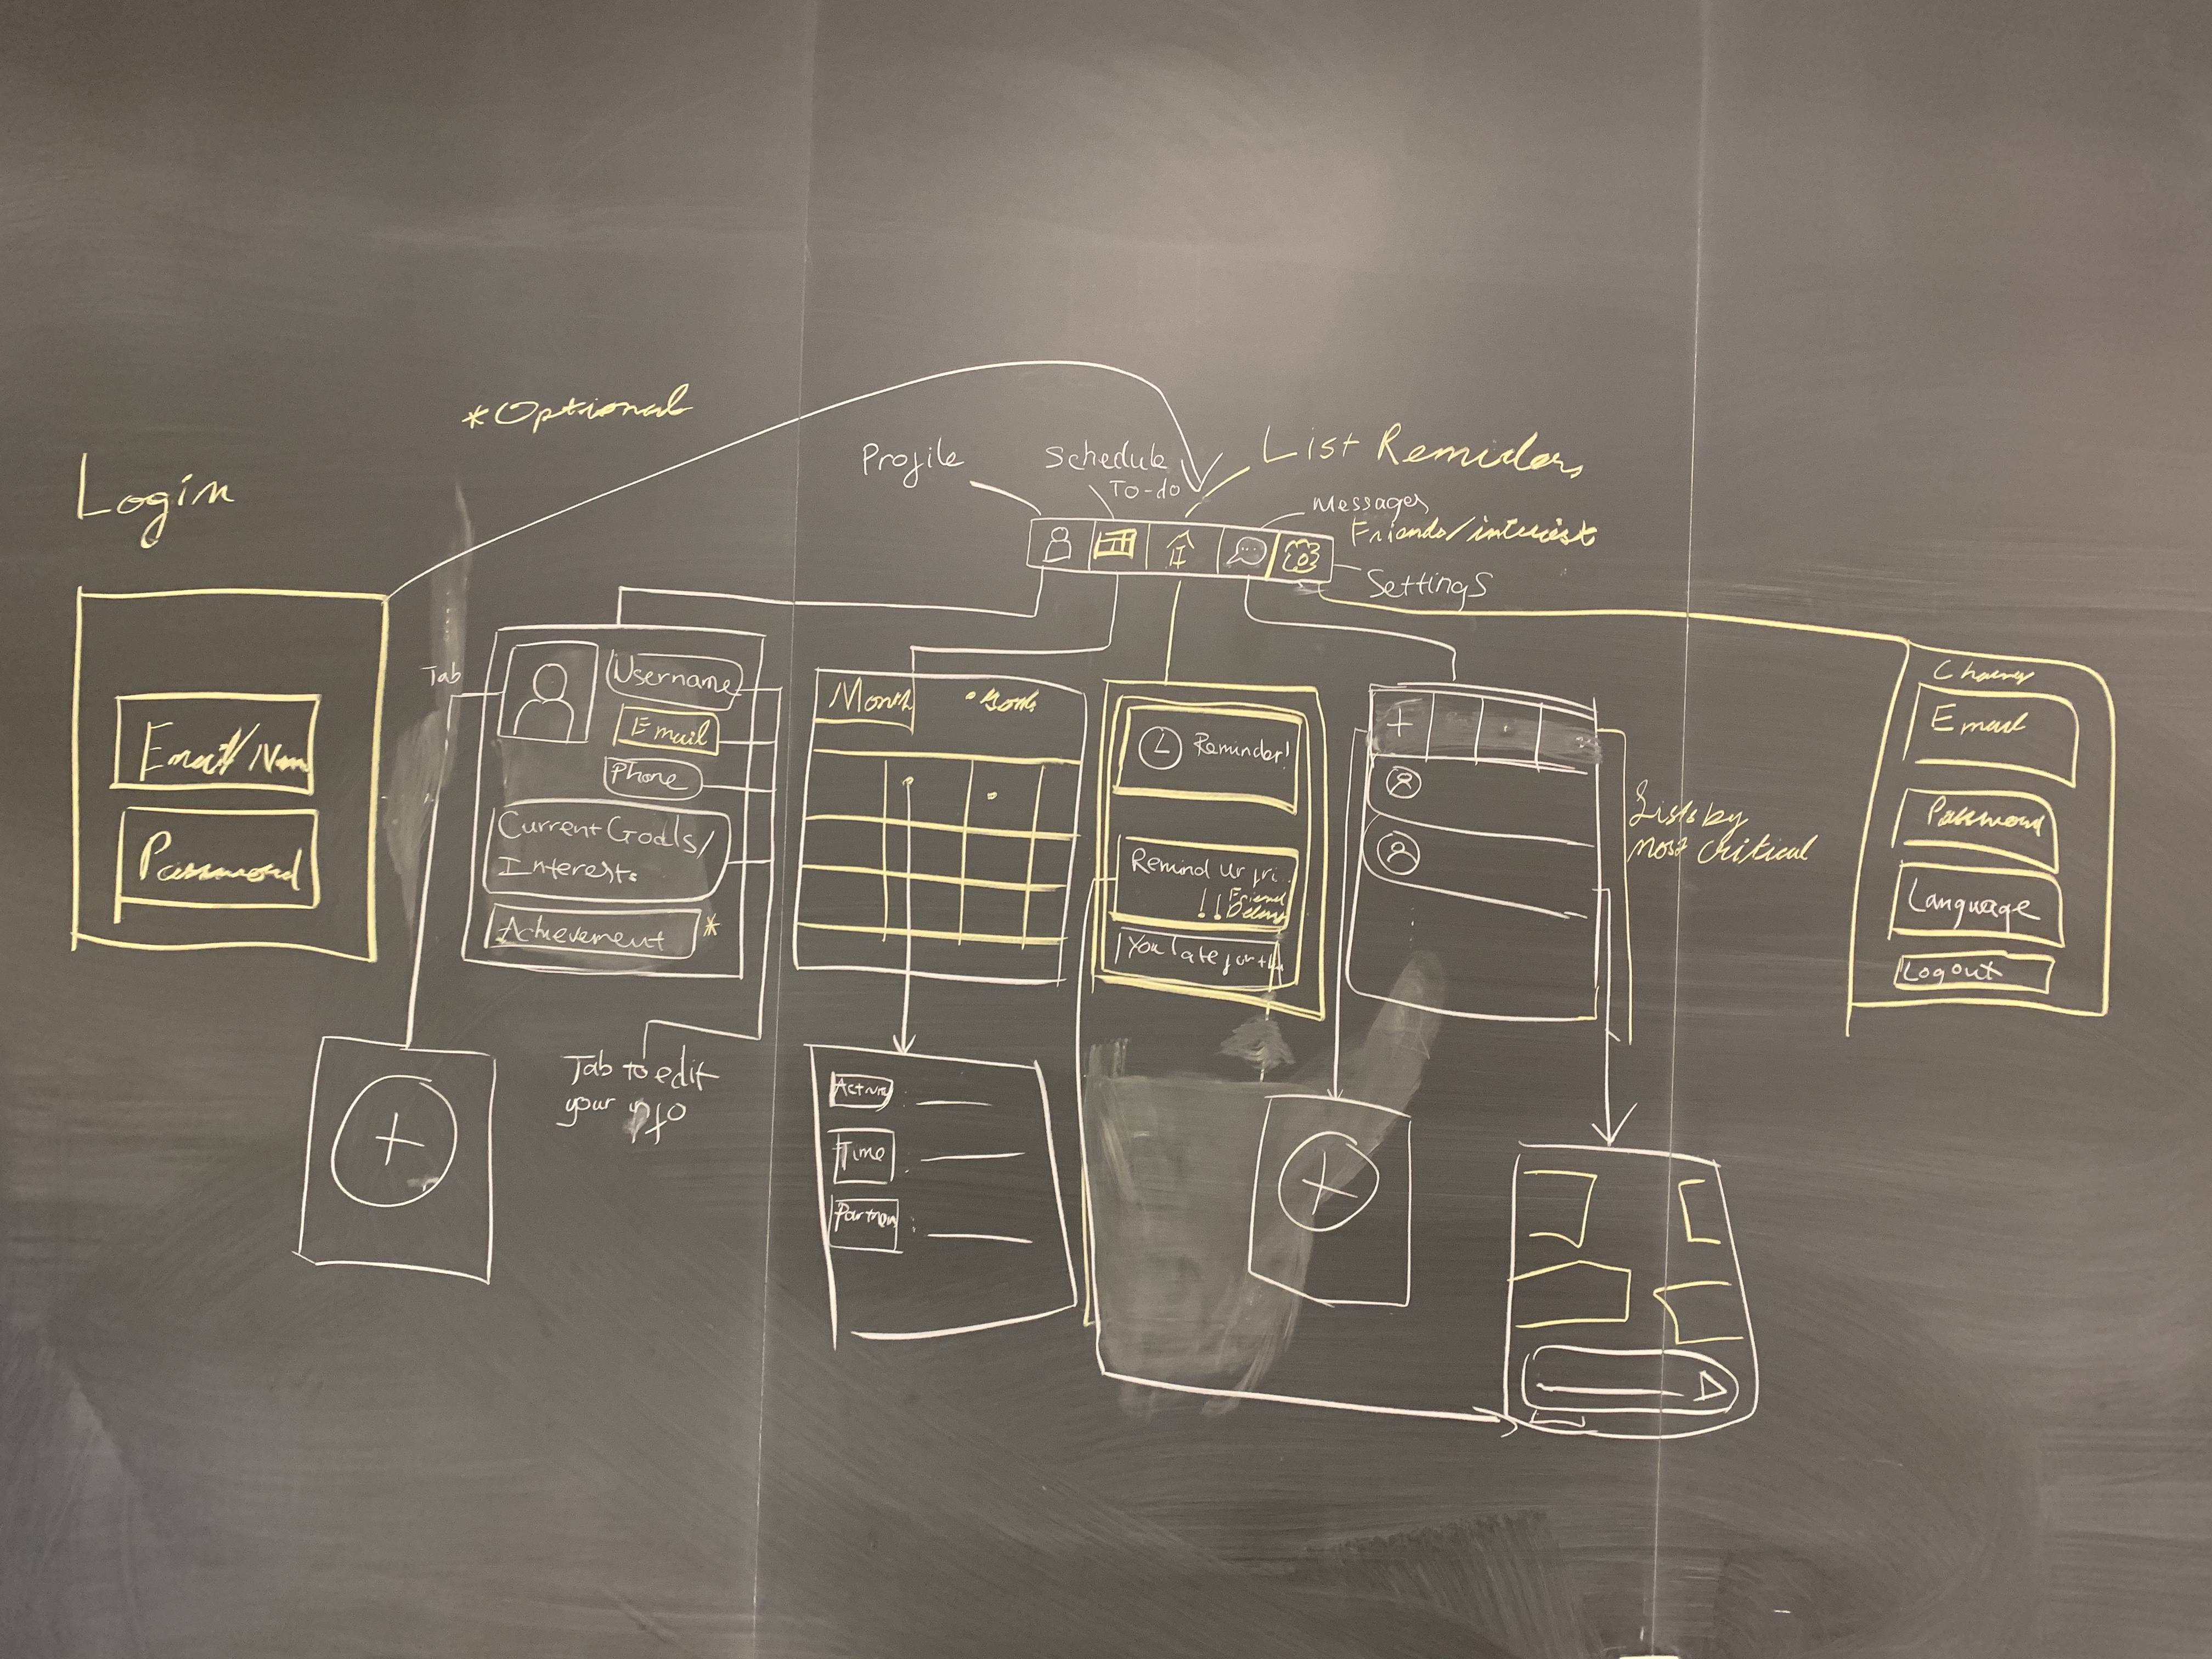 *Optional
Login
Email/Nam
Password
Profile
Schedule
To-do
List Remiders
Messages
Friends/interist
Settings
Tab
Username
Email
Phone
Current Goals/
Interests
Achievement *
Tab to edit
your info
Month
Activity
:
Time
:
Partner
:
Reminder!
Remind ur fri..
!! Friend
You late for th
+
Lists by
most critical
Email
Password
Language
Logout
+
+